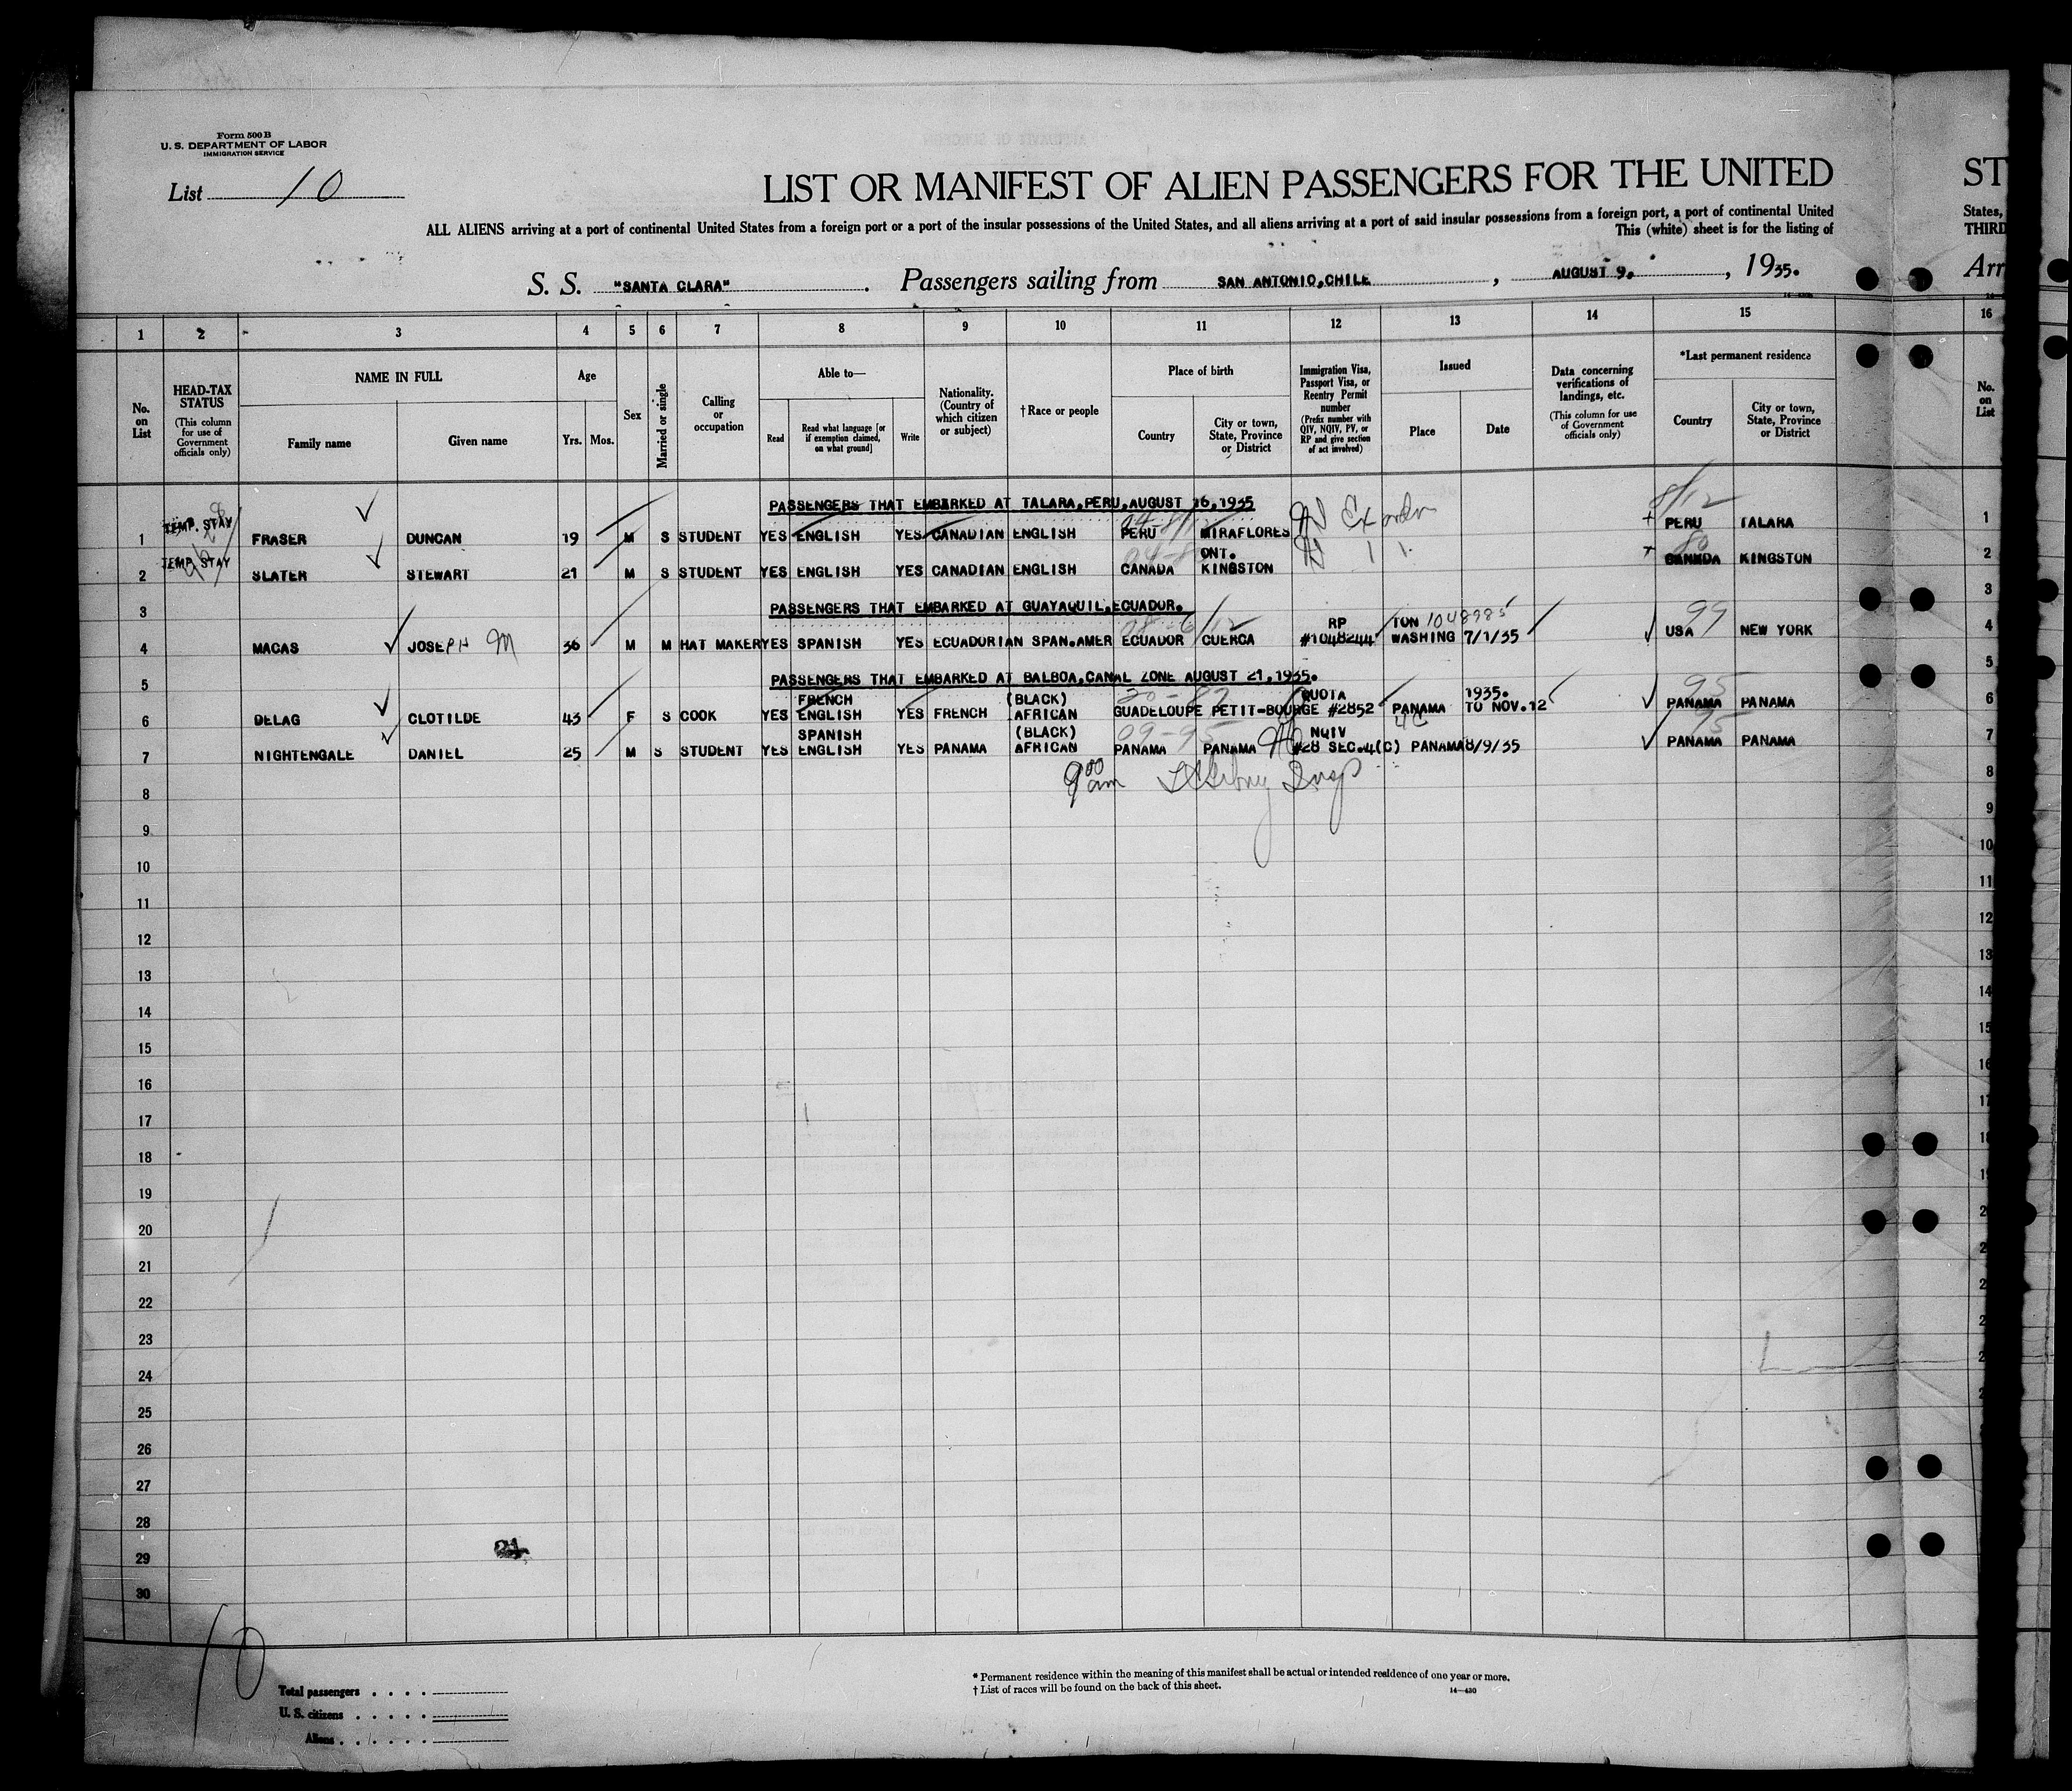 Form 500 B
U. S. DEPARTMENT OF LABOR
IMMIGRATION SERVICE
List 10
LIST OR MANIFEST OF ALIEN PASSENGERS FOR THE UNITED
ST
ALL ALIENS arriving at a port of continental United States from a foreign port or a port of the insular possessions of the United States, and all aliens arriving at a port of said insular possessions from a foreign port, a port of continental United
States,
This (white) sheet is for the listing of
THIRD
S. S. "SANTA CLARA". Passengers sailing from SAN ANTONIO,CHILE, AUGUST 9., 1935.
Arr
1 2 3 4 5 6 7 8 9 10 11 12 13 14 15 16
No. on List
HEAD-TAX STATUS (This column for use of Government officials only)
NAME IN FULL
Family name
Given name
Age
Yrs. Mos.
Sex
Married or single
Calling or occupation
Able to—
Read
Read what language [or if exemption claimed, on what ground]
Write
Nationality. (Country of which citizen or subject)
† Race or people
Place of birth
Country
City or town, State, Province or District
Immigration Visa, Passport Visa, or Reentry Permit number (Prefix number with QIV, NQIV, PV, or RP and give section of act involved)
Issued
Place
Date
Data concerning verifications of landings, etc. (This column for use of Government officials only)
*Last permanent residence
Country
City or town, State, Province or District
No. on List
PASSENGERS THAT EMBARKED AT TALARA,PERU,AUGUST 16,1935
8/12
TEMP. STAY
1 FRASER DUNCAN 19 M S STUDENT YES ENGLISH YES CANADIAN ENGLISH PERU MIRAFLORES PERU TALARA 1
TEMP. STAY ONT. 80
2 SLATER STEWART 21 M S STUDENT YES ENGLISH YES CANADIAN ENGLISH CANADA KINGSTON CANADA KINGSTON 2
3 PASSENGERS THAT EMBARKED AT GUAYAQUIL,ECUADOR. 3
RP TON 1048985 99
4 MACAS JOSEPH M 36 M M HAT MAKER YES SPANISH YES ECUADORIAN SPAN.AMER ECUADOR CUENCA #1048244 WASHING 7/1/35 USA NEW YORK 4
5 PASSENGERS THAT EMBARKED AT BALBOA,CANAL ZONE AUGUST 21,1935. 5
FRENCH (BLACK) QUOTA 1935. 95
6 DELAG CLOTILDE 43 F S COOK YES ENGLISH YES FRENCH AFRICAN GUADELOUPE PETIT-BOURGE #2852 PANAMA TO NOV.12 PANAMA PANAMA 6
SPANISH (BLACK) 09-95 NQIV 4C 95
7 NIGHTENGALE DANIEL 25 M S STUDENT YES ENGLISH YES PANAMA AFRICAN PANAMA PANAMA #28 SEC.4(C) PANAMA 8/9/35 PANAMA PANAMA 7
9 00 am Insp
8 8
9 9
10 10
11 11
12 12
13 13
14 14
15 15
16 16
17
18
19
20
21
22
23
24
25
26
27
28
29
30
10
Total passengers
U. S. citizens
Aliens
* Permanent residence within the meaning of this manifest shall be actual or intended residence of one year or more.
† List of races will be found on the back of this sheet.
14—430